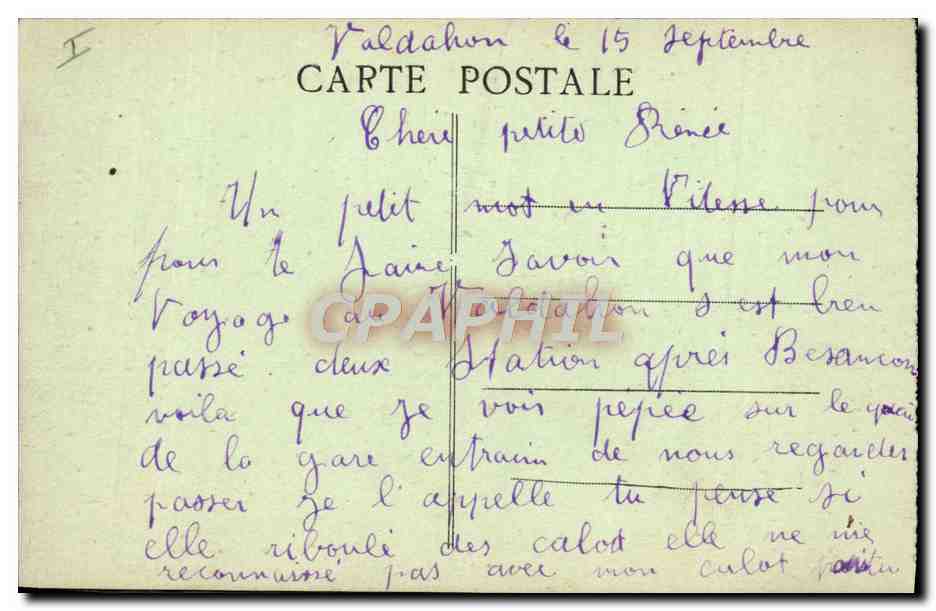 I
Valdahon le 15 septembre
CARTE POSTALE
Chere petite Rénée
Un petit mot en Vitesse pour
pour te faire savoir que mon
Voyage au Valdahon s est bien
passé deux station après Besancon
voila que je vois pepée sur le quai
de la gare entrain de nous regarder
passer je l'appelle tu pense si
elle riboulé des calot elle ne me
reconnaissé pas avec mon calot
CPAPHIL